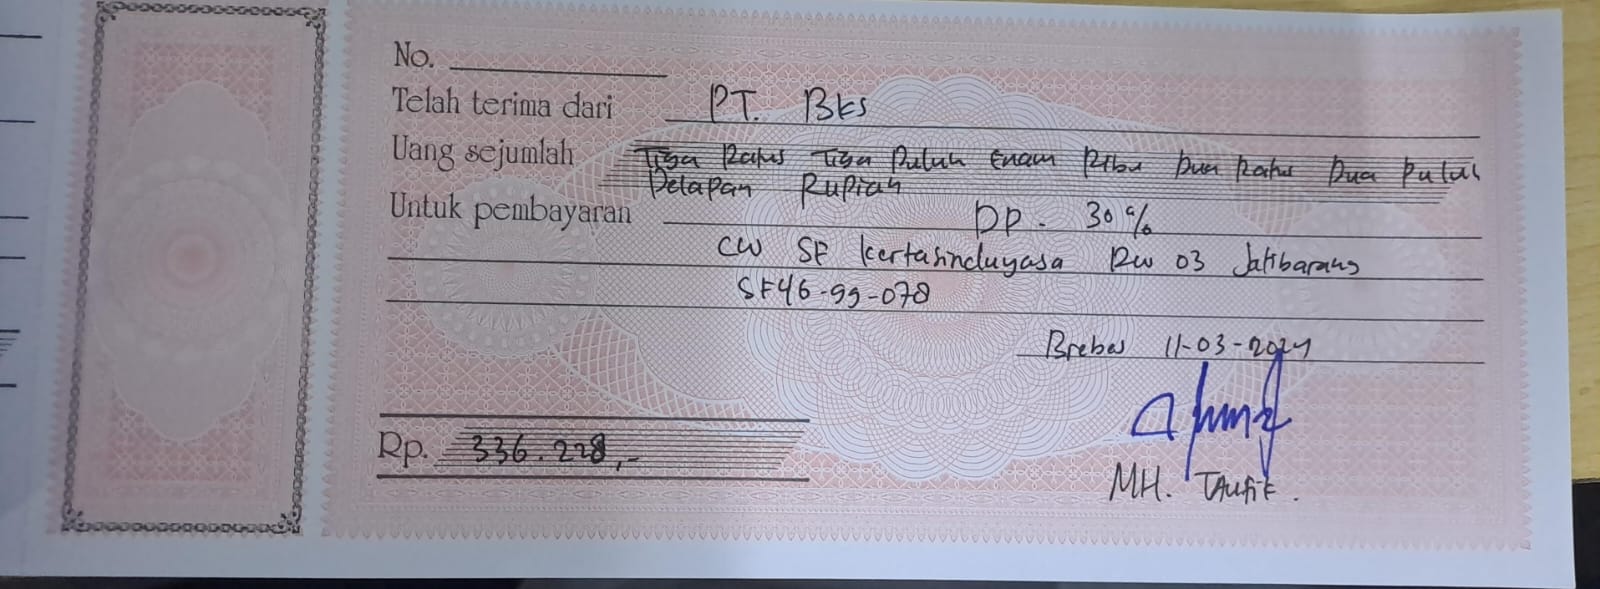 No.
Telah terima dari PT. BKS
Uang sejumlah Tiga Ratus Tiga Puluh Enam Ribu Dua Ratus Dua Puluh
Delapan Rupiah
Untuk pembayaran DP. 30%
CW SF Kertasinduyasa RW 03 Jatibarang
SF46-99-078
Brebes 11-03-2024
Rp. 336.228,-
MH. TAufik.